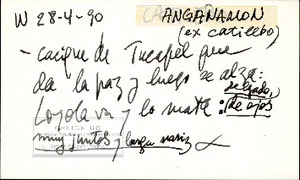 W 28-4-90
ANGANAMON
(ex catillebo)
- cacique de Tucapel que
da la paz y luego se alza:
Loyola va y lo mata: delgado,
de ojos
muy juntos y larga nariz